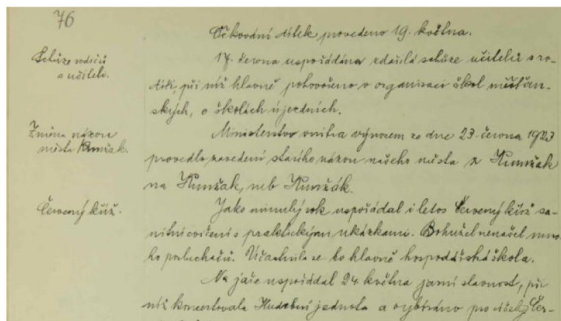 76
Očkování dítek provedeno 19. května.
Schůze rodičů
a učitelů.
17. června uspořádána zdařilá schůze učitelů s ro-
diči, při níž hlavně pohovořeno o organisaci škol měšťan-
ských, o školách újezdních.
Změna názvu
města Kunžak.
Ministerstvo vnitra výnosem ze dne 23. června 1923
provedlo zavedení starého názvu našeho města z Kumžak
na Kunžak, neb Kunžák.
Červený kříž.
Jako minulý rok uspořádal i letos Červený kříž sa-
nitní cvičení s praktickými ukázkami. Bohužel nenašel mno-
ho posluchačů. Účastnila se ho hlavně hospodářská škola.
Na jaře uspořádal 24 května jarní slavnost, při
níž koncertovala Hudební jednota a vybíráno po městě Čer-